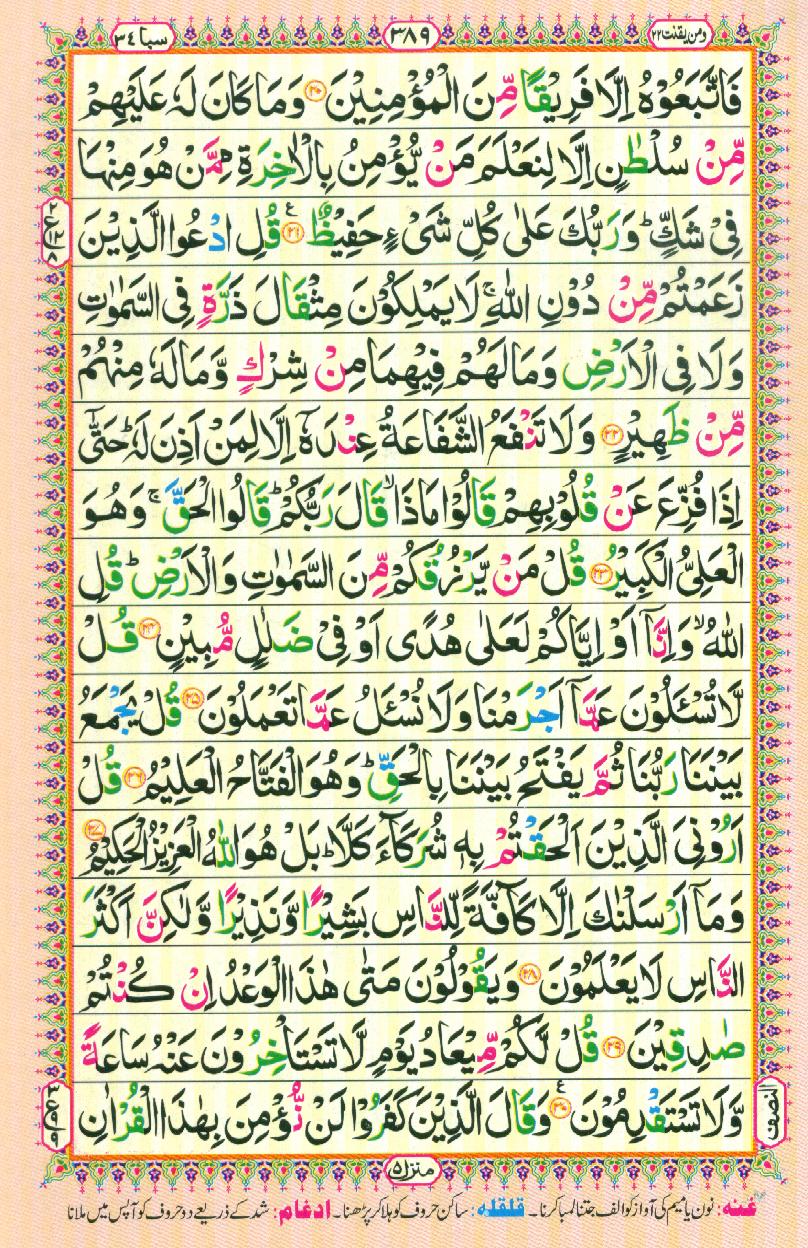 ومن يقنت ٢٢
٣٨٩
سبا ٣٤
فَاتَّبَعُوْهُ اِلَّا فَرِيْقًا مِّنَ الْمُؤْمِنِيْنَ ۝٢٠ وَمَا كَانَ لَهٗ عَلَيْهِمْ
مِّنْ سُلْطٰنٍ اِلَّا لِنَعْلَمَ مَنْ يُّؤْمِنُ بِالْاٰخِرَةِ مِمَّنْ هُوَ مِنْهَا
فِيْ شَكٍّ ؕ وَرَبُّكَ عَلٰى كُلِّ شَيْءٍ حَفِيْظٌ ۝٢١ ع قُلِ ادْعُوا الَّذِيْنَ
زَعَمْتُمْ مِّنْ دُوْنِ اللّٰهِ ۚ لَا يَمْلِكُوْنَ مِثْقَالَ ذَرَّةٍ فِي السَّمٰوٰتِ
وَلَا فِي الْاَرْضِ وَمَا لَهُمْ فِيْهِمَا مِنْ شِرْكٍ وَّمَا لَهٗ مِنْهُمْ
مِّنْ ظَهِيْرٍ ۝٢٢ وَلَا تَنْفَعُ الشَّفَاعَةُ عِنْدَهٗۤ اِلَّا لِمَنْ اَذِنَ لَهٗ ؕ حَتّٰۤى
اِذَا فُزِّعَ عَنْ قُلُوْبِهِمْ قَالُوْا مَاذَا ۙ قَالَ رَبُّكُمْ ؕ قَالُوا الْحَقَّ ۚ وَهُوَ
الْعَلِيُّ الْكَبِيْرُ ۝٢٣ قُلْ مَنْ يَّرْزُقُكُمْ مِّنَ السَّمٰوٰتِ وَالْاَرْضِ ؕ قُلِ
اللّٰهُ ۙ وَاِنَّاۤ اَوْ اِيَّاكُمْ لَعَلٰى هُدًى اَوْ فِيْ ضَلٰلٍ مُّبِيْنٍ ۝٢٤ قُلْ
لَّا تُسْـَٔلُوْنَ عَمَّاۤ اَجْرَمْنَا وَلَا نُسْـَٔلُ عَمَّا تَعْمَلُوْنَ ۝٢٥ قُلْ يَجْمَعُ
بَيْنَنَا رَبُّنَا ثُمَّ يَفْتَحُ بَيْنَنَا بِالْحَقِّ ؕ وَهُوَ الْفَتَّاحُ الْعَلِيْمُ ۝٢٦ قُلْ
اَرُوْنِيَ الَّذِيْنَ اَلْحَقْتُمْ بِهٖ شُرَكَآءَ كَلَّا ؕ بَلْ هُوَ اللّٰهُ الْعَزِيْزُ الْحَكِيْمُ ۝٢٧
وَمَاۤ اَرْسَلْنٰكَ اِلَّا كَآفَّةً لِّلنَّاسِ بَشِيْرًا وَّنَذِيْرًا وَّلٰكِنَّ اَكْثَرَ
النَّاسِ لَا يَعْلَمُوْنَ ۝٢٨ وَيَقُوْلُوْنَ مَتٰى هٰذَا الْوَعْدُ اِنْ كُنْتُمْ
صٰدِقِيْنَ ۝٢٩ قُلْ لَّكُمْ مِّيْعَادُ يَوْمٍ لَّا تَسْتَاْخِرُوْنَ عَنْهُ سَاعَةً
وَّلَا تَسْتَقْدِمُوْنَ ۝٣٠ ع وَقَالَ الَّذِيْنَ كَفَرُوْا لَنْ نُّؤْمِنَ بِهٰذَا الْقُرْاٰنِ
٢ ع ١٢ ٨
النصف
منزل ٥
غنه: نون یا میم کی آواز کو الف جتنا لمبا کرنا۔ قلقله: ساکن حروف کو ہلا کر پڑھنا۔ ادغام: شد کے ذریعے دو حروف کو آپس میں ملانا